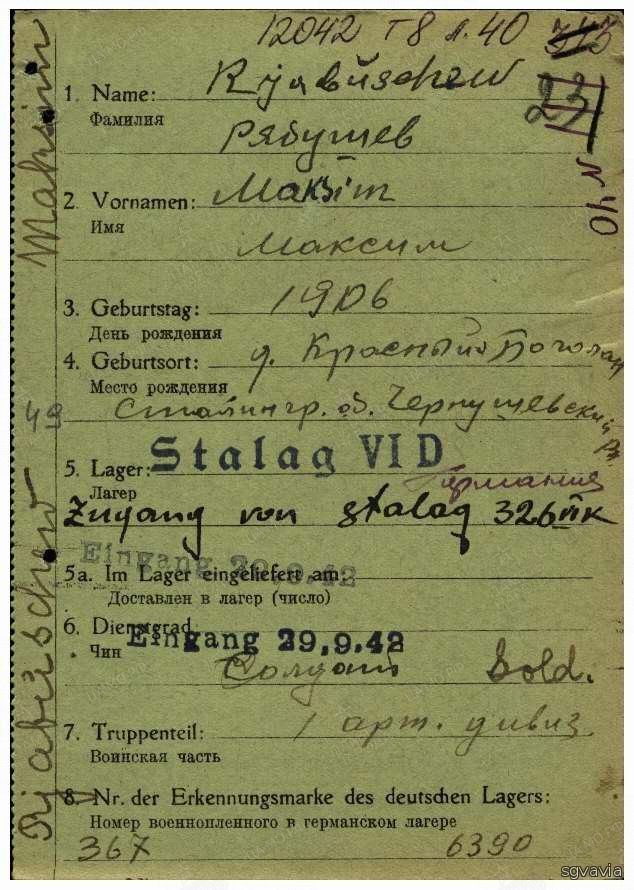 12042 т 8 л. 40 343
23
N 40
Maksim
Rjabuschew
1. Name: Rjabuschew
Фамилия
Рябушев
2. Vornamen: Maksim
Имя
Максим
3. Geburtstag: 1906
День рождения
4. Geburtsort: д. Красный
Место рождения
49 Сталингр. об. Чернушевский
5. Lager: Stalag VI D
Лагер Германия
Zugang von Stalag 326 VI K
Eingang 29.9.42
5a. Im Lager eingeliefert am:
Доставлен в лагер (число)
6. Dienstgrad
Eingang 29.9.42
Чин Солдат Sold.
7. Truppenteil: 1 арт. дивиз
Воинская часть
8. Nr. der Erkennungsmarke des deutschen Lagers:
Номер военнопленного в германском лагере
367 6390
sgvavia